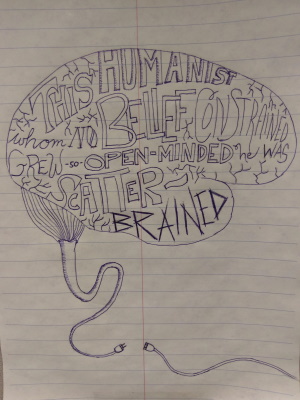 THIS HUMANIST
whom NO BELIEF CONSTRAINED
GREW -SO- OPEN-MINDED he WAS
SCATTER-
BRAINED